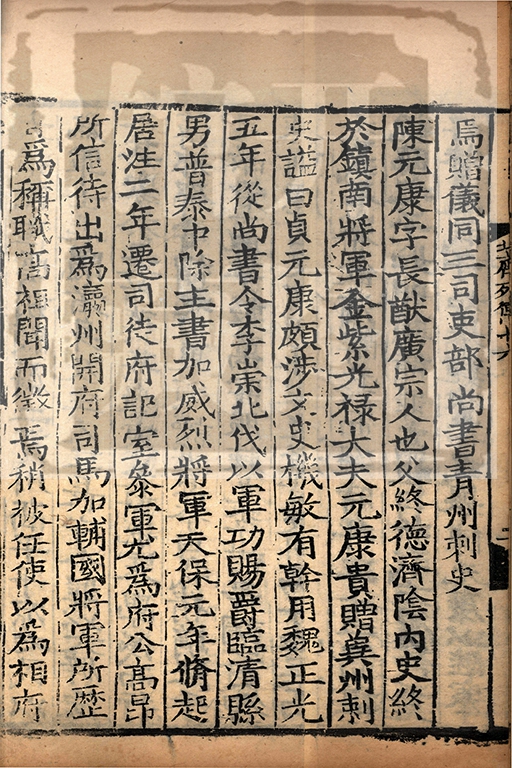 北齊列傳十六
二
焉贈儀同三司吏部尚書青州刺史
陳元康字長猷廣宗人也父終德濟陰内史終
於鎮南將軍金紫光禄大夫元康貴贈冀州刺
史諡曰貞元康頗涉文史機敏有幹用魏正光
五年從尚書令李崇北伐以軍功賜爵臨清縣
男普泰中除主書加威烈將軍天保元年脩起
居注二年遷司徒府記室叅軍尤爲府公高昂
所信待出爲瀛州開府司馬加輔國將軍所歴
爲稱職高祖聞而徵焉稍被任使以爲相府